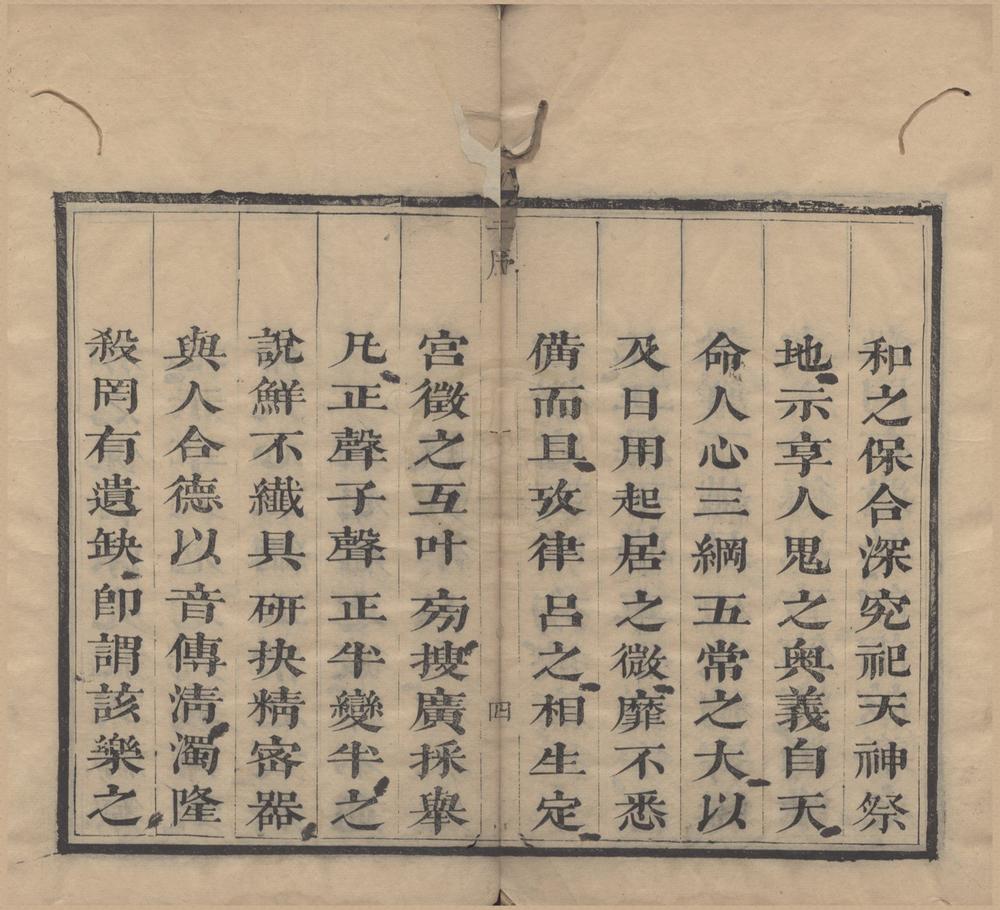 和之保合深究祀天神祭
地示享人鬼之奧義自天
命人心三綱五常之大以
及日用起居之微靡不悉
備而且攷律呂之相生定
序
四
宮徵之互叶旁搜廣採舉
凡正聲子聲正半變半之
說鮮不纖具研抉精密器
與人合德以音傳淸濁隆
殺罔有遺缺卽謂該樂之